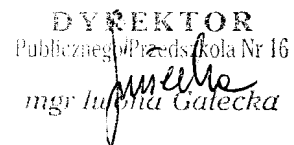 DYREKTOR
Publicznego Przedszkola Nr 16
mgr Iwona Gałecka